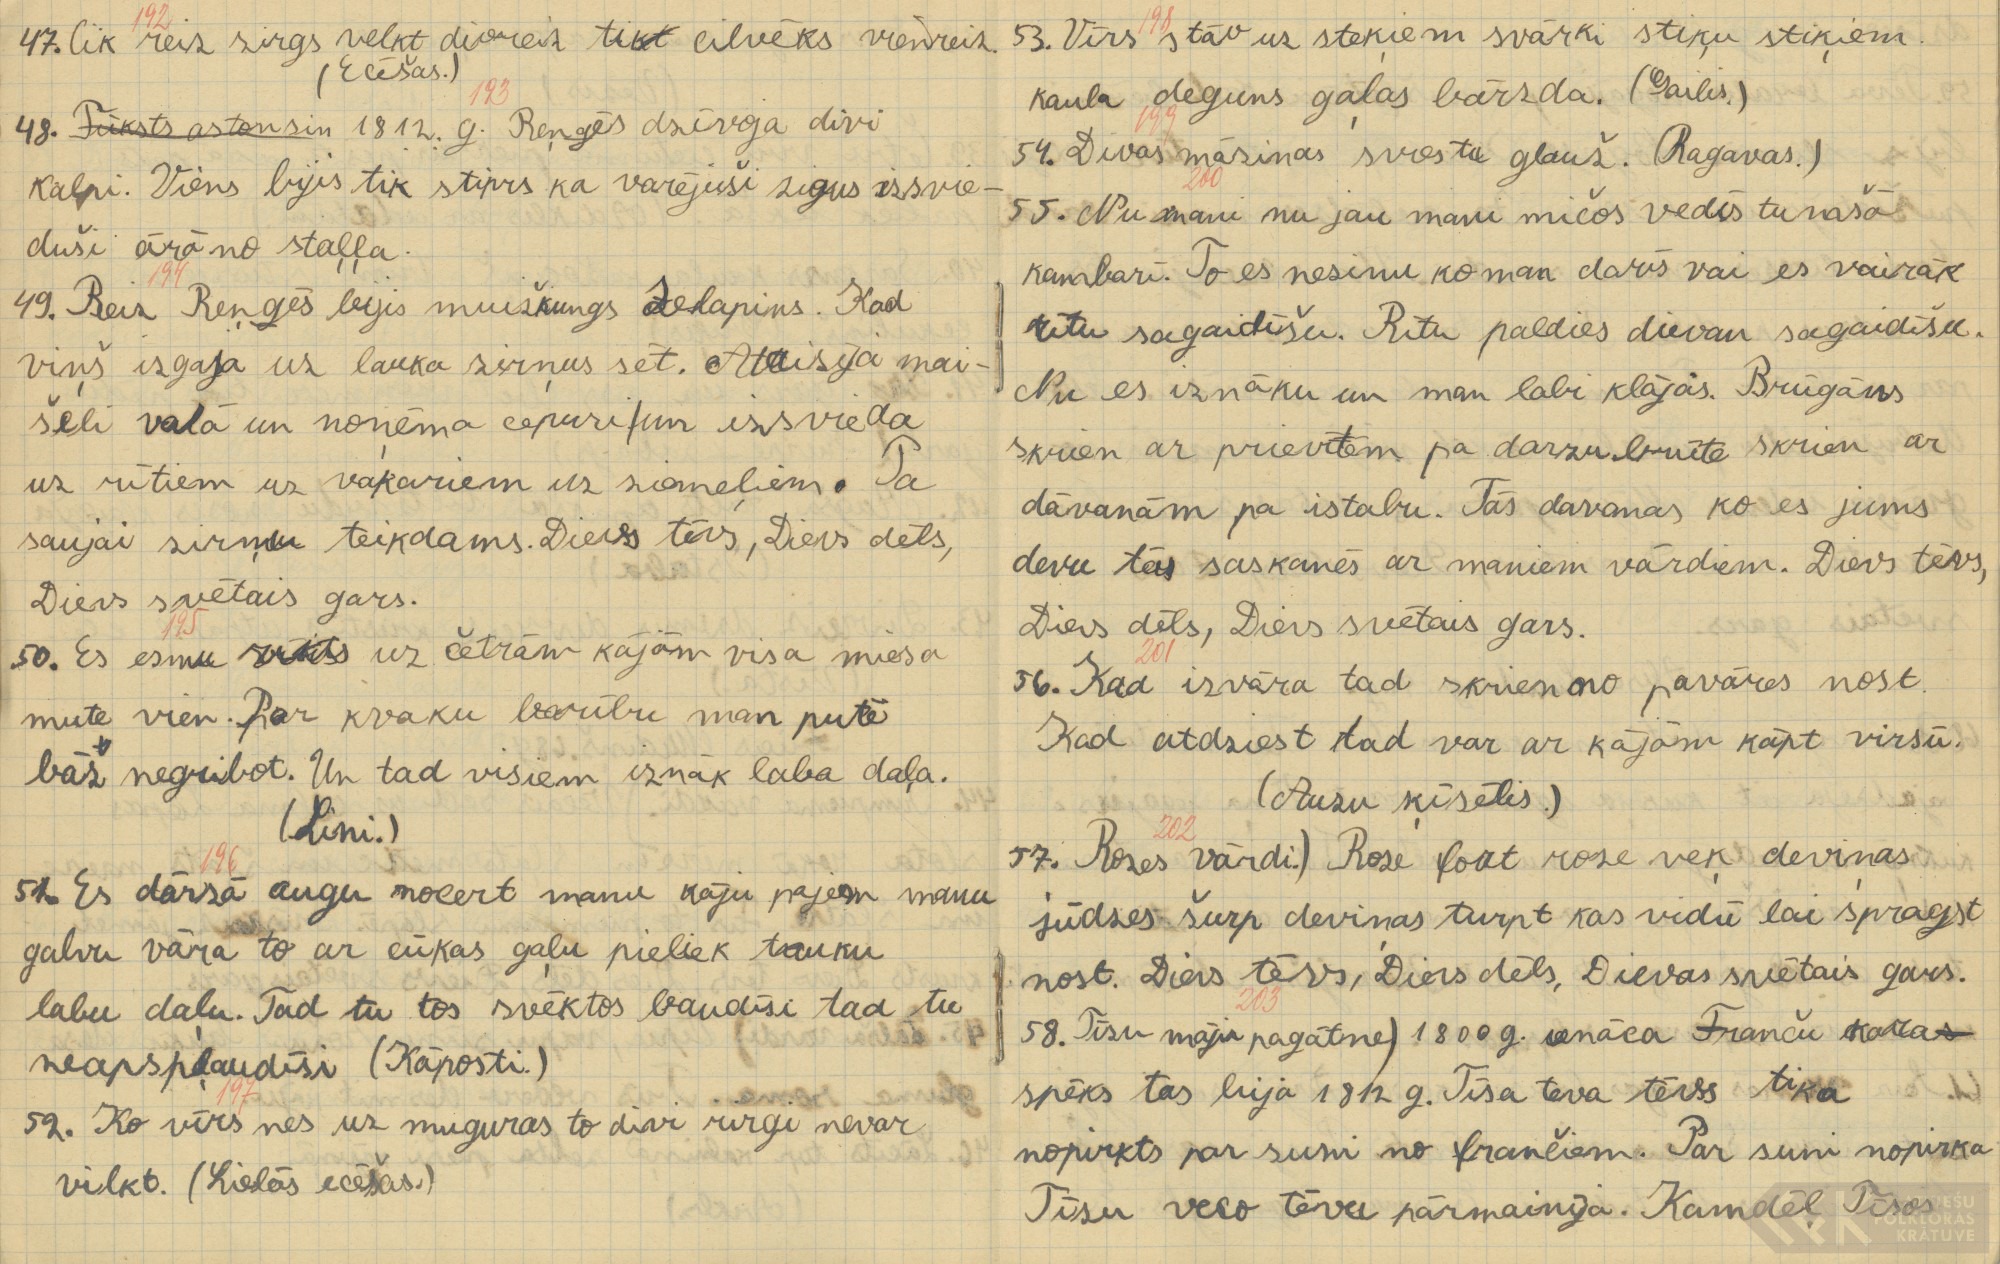 192
47. Cik reiz zirgs velkt divreiz tikt cilvēks vienreiz.
(Ecēšas.)
193
48. Fūksts astonsin 1812. g. Reņģēs dzīvoja divi
kalpi. Viens bijis tik stiprs ka varējuši zigus izsvie-
duši ārā no staļļa.
194
49. Reiz Reņģēs bijis muižkungs Zelapins. Kad
viņš izgaja uz lauka zirņus sēt. Attaisīja mai-
šeli valā un noņēma cepuri un izsvieda
uz rītiem uz vakariem uz ziemeļiem. Pa
saujai zirņu teikdams. Dievs tēvs, Dievs dēls,
Dievs svētais gars.
195
50. Es esmu uz četrām kājām visa miesa
mute vien. Par kvaku barību man putē
bāž negribot. Un tad visiem iznāk laba daļa.
(Lini.)
196
51. Es dārzā augu nocert manu kāju pajem manu
galvu vāra to ar cūkas gaļu pieliek tauku
labu daļu. Tad tu tos svēktos baudīsi tad tu
neapspļaudīsi (Kāposti.)
197
52. Ko vīrs nes uz muguras to divi zirgi nevar
vilkt. (Lielās ecēšas.)
198
53. Vīrs stāv uz stekiem svārki stiķu stiķiem.
kaula deguns gaļas bārzda. (Gailis.)
199
54. Divas māsinas svesta glauž. (Ragavas.)
200
55. Nu mani nu jau mani mičos vedīs tunašā
kambarī. To es nesinu ko man darīs vai es vairāk
rītu sagaidīšu. Rītu paldies dievan sagaidīšu.
Nu es iznāku un man labi klājās. Brūgāns
skrien ar prievītēm pa darzu brūte skrien ar
dāvanām pa istabu. Tās davanas ko es jums
devu tās saskanēs ar maniem vārdiem. Dievs tēvs,
Dievs dēls, Dievs svētais gars.
201
56. Kad izvāra tad skrien no pavāres nost.
Kad atdziest tad var ar kājām kāpt virsū.
(Auzu ķīsēlis.)
202
57. Rozes vārdi.) Roze foat roze veķ deviņas
jūdzes šurp deviņas turpt kas vidū lai spragst
nost. Dievs tēvs, Dievs dēls, Dievas svētais gars.
203
58. Tīsu māju pagātne) 1800 g. enāca Franču karas
spēks tas bija 1812 g. Tīsa teva tēvs tika
nopirkts par suni no frančiem. Par suni nopirka
Tīsu veco tēvu pārmainīja. Kamdēļ Tīsos
LATVIEŠU
FOLKLORAS
KRĀTUVE